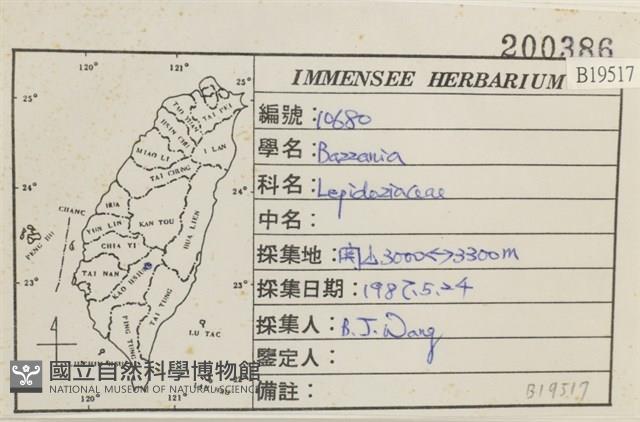 200386
B19517
IMMENSEE HERBARIUM
編號：10680
學名：Bazzania
科名：Lepidoziaceae
中名：
採集地：関山3000<->3300m
採集日期：1987.5.24
採集人：B.J.Wang
鑒定人：
備註：
B19517
120° 121°
25° 25°
TAO YUAN
TAI PEI
HSIN CHU
I LAN
MIAO LI
TAI CHUNG
24° 24°
CHANG HUA
NAN TOU
HUA LIEN
YUN LIN
PENG HU
CHIA YI
TAI NAN
KAO HSIUNG
23° 23°
TAI TUNG
PING TUNG
LU TAO
22° 22°
120° 121°
國立自然科學博物館
NATIONAL MUSEUM OF NATURAL SCIENCE